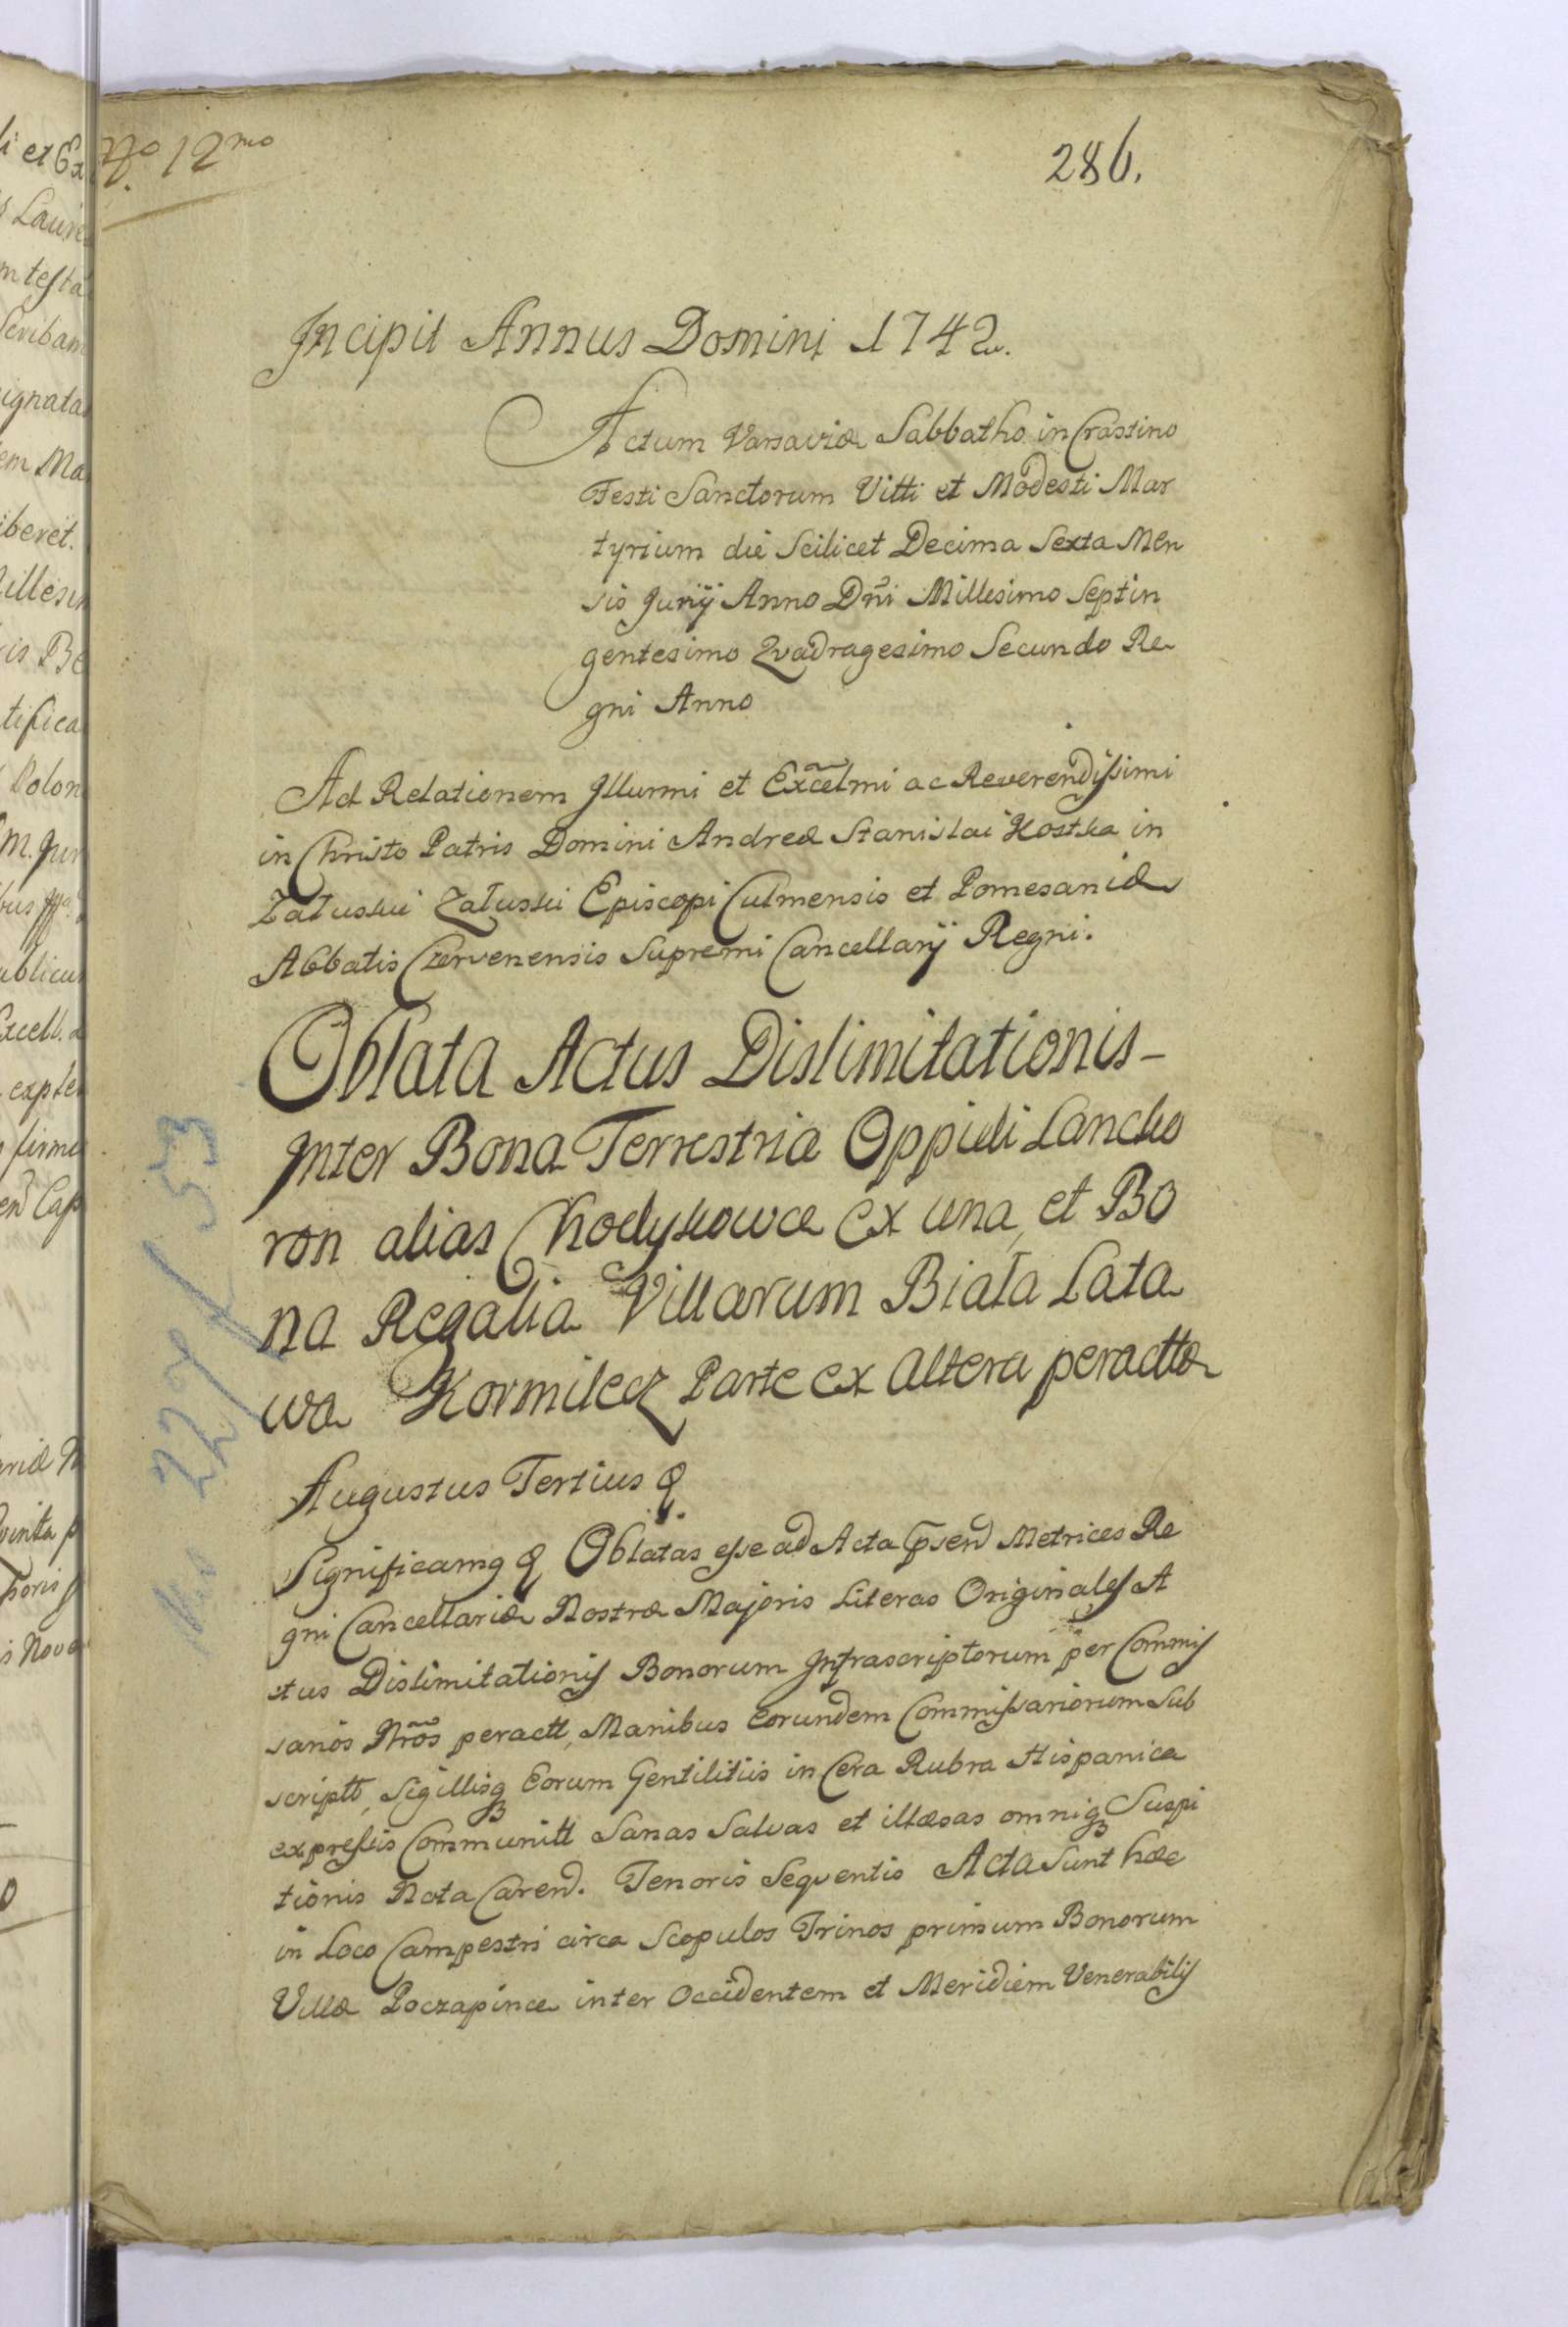 No 12mo
286.
Incipit Annus Domini 1742.
Actum Varsaviæ Sabbatho in Crastino
Festi Sanctorum Vitti et Modesti Mar
tyrium die Scilicet Decima Sexta Men
sis Junij Anno Dñi Millesimo Septin
gentesimo Qvadragesimo Secundo Re
gni Anno
Ad Relationem Illumi et Excelmi ac Reverendissimi
in Christo Patris Domini Andreæ Stanislai Kostka in
Załuskie Załuski Episcopi Culmensis et Pomesaniæ
Abbatis Czervenensis Supremi Cancellarij Regni.
Oblata Actus Dislimitationis
Inter Bona Terrestria Oppidi Lancko
ron alias Chodykowce ex una, et Bo
na Regalia Villarum Biała Lata
wa Kormilecz Parte ex altera peracttæ
Augustus Tertius &.
Significamq & Oblatas esse ad Acta pñsend Metrices Re
gni Cancellariæ Nostræ Majoris Literas Originales A
ctus Dislimitationis Bonorum Infrascriptorum per Commis
sarios Nrõs peractt, Manibus Eorundem Commissariorum Sub
scriptt, Sigillisq Eorum Gentilitiis in Cera Rubra Hispanica
expressis Communitt Sanas Salvas et illæsas omniq Suspi
tionis Nota Carend. Tenoris Seqventis Acta Sunt hæc
in Loco Campestri circa Scopulos Trinos primum Bonorum
Villæ Poczapince inter Occidentem et Meridiem Venerabilis
227/53